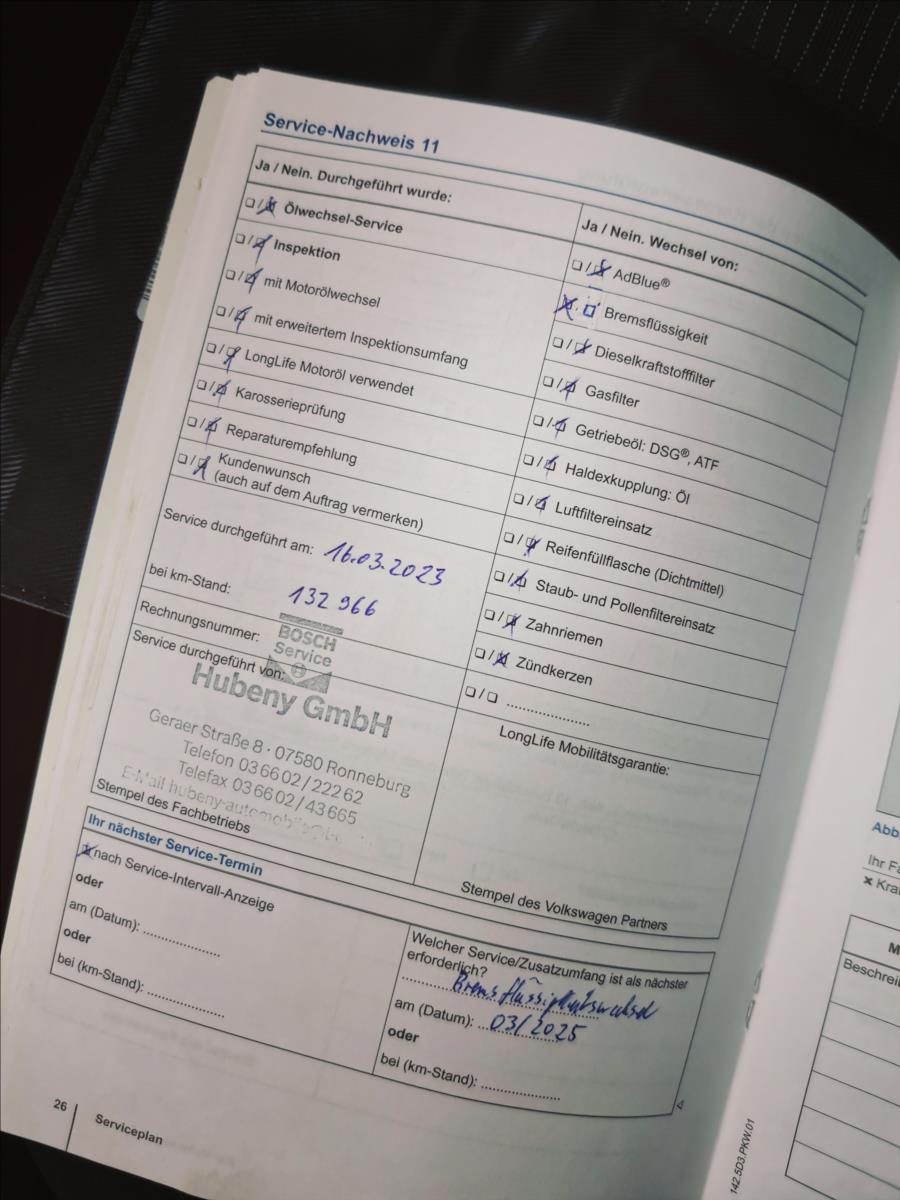 Service-Nachweis 11
Ja / Nein. Durchgeführt wurde:
❑ / ☒ Ölwechsel-Service
❑ / ☒ Inspektion
❑ / ☒ mit Motorölwechsel
❑ / ☒ mit erweitertem Inspektionsumfang
❑ / ☒ LongLife Motoröl verwendet
❑ / ☒ Karosserieprüfung
❑ / ☒ Reparaturempfehlung
❑ / ☒ Kundenwunsch
(auch auf dem Auftrag vermerken)
Service durchgeführt am: 16.03.2023
bei km-Stand: 132 966
Rechnungsnummer:
Service durchgeführt von:
BOSCH
Service
Hubeny GmbH
Geraer Straße 8 · 07580 Ronneburg
Telefon 03 66 02 / 222 62
Telefax 03 66 02 / 43 665
E-Mail
Stempel des Fachbetriebs
Ja / Nein. Wechsel von:
❑ / ☒ AdBlue®
☒ / ❑ Bremsflüssigkeit
❑ / ☒ Dieselkraftstofffilter
❑ / ☒ Gasfilter
❑ / ☒ Getriebeöl: DSG®, ATF
❑ / ☒ Haldexkupplung: Öl
❑ / ☒ Luftfiltereinsatz
❑ / ☒ Reifenfüllflasche (Dichtmittel)
❑ / ☒ Staub- und Pollenfiltereinsatz
❑ / ☒ Zahnriemen
❑ / ☒ Zündkerzen
❑ / ❑ .....................
LongLife Mobilitätsgarantie:
Stempel des Volkswagen Partners
Ihr nächster Service-Termin
☒ nach Service-Intervall-Anzeige
oder
am (Datum): ....................
oder
bei (km-Stand): ....................
Welcher Service/Zusatzumfang ist als nächster
erforderlich?
Bremsflüssigkeitswechsel
am (Datum): 03/2025
oder
bei (km-Stand): ....................
26
Serviceplan
142.5D3.PKW.01
Abb
Ihr Fa
× Kra
M
Beschrei